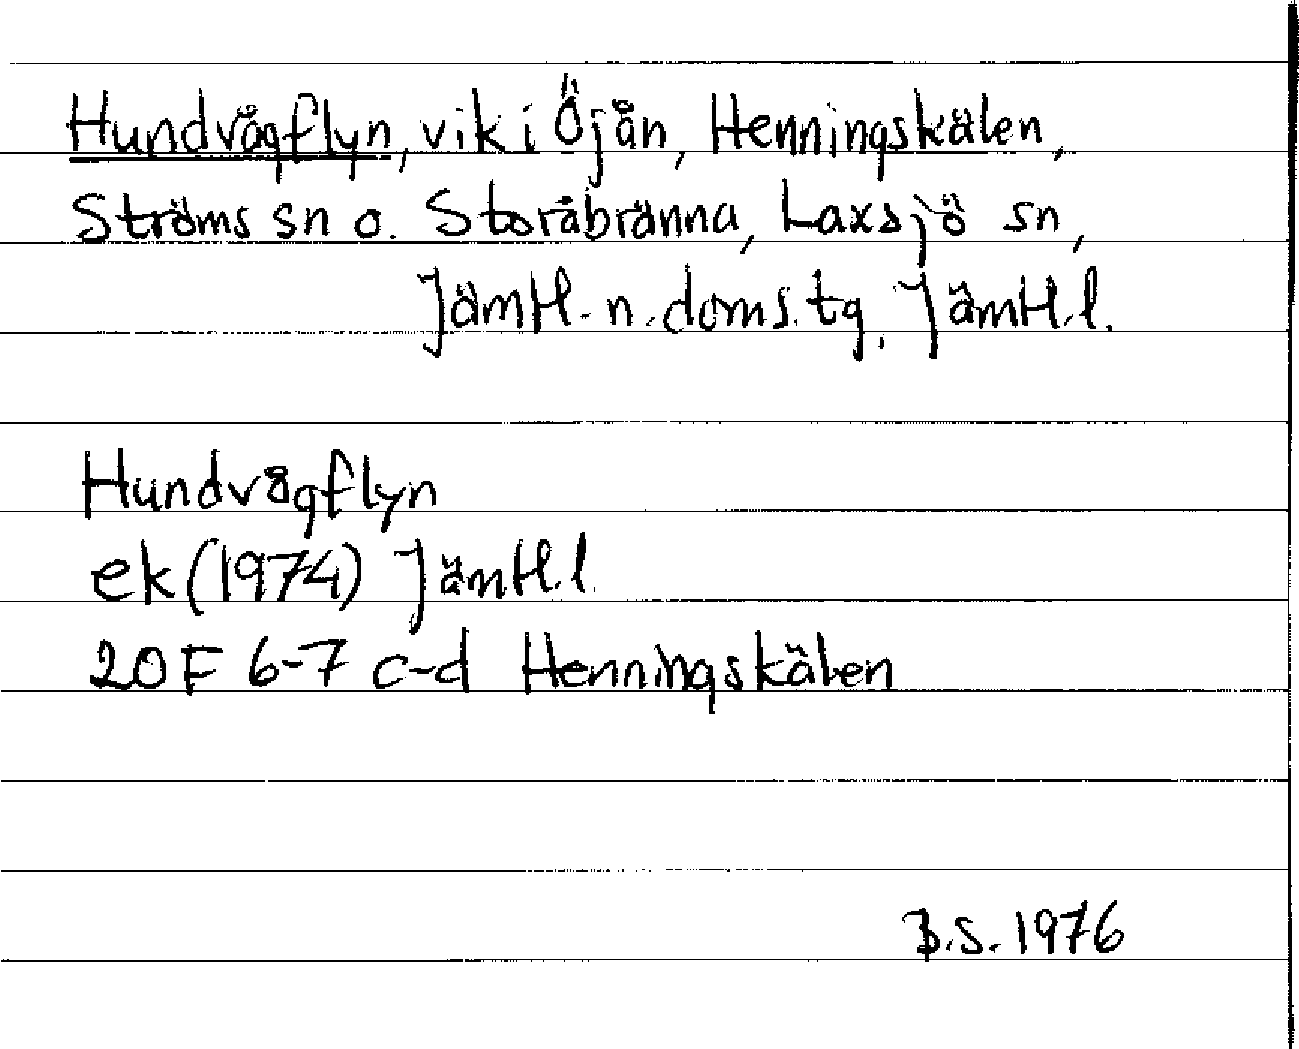 Hundvågflyn, vik i Öjån, Henningskälen,
Ströms sn o. Storåbränna, Laxsjö sn,
Jämtl. n. doms. tg, Jämtl. l.
Hundvågflyn
ek (1974) Jämtl. l.
20 F 6-7 c-d Henningskälen
B.S. 1976